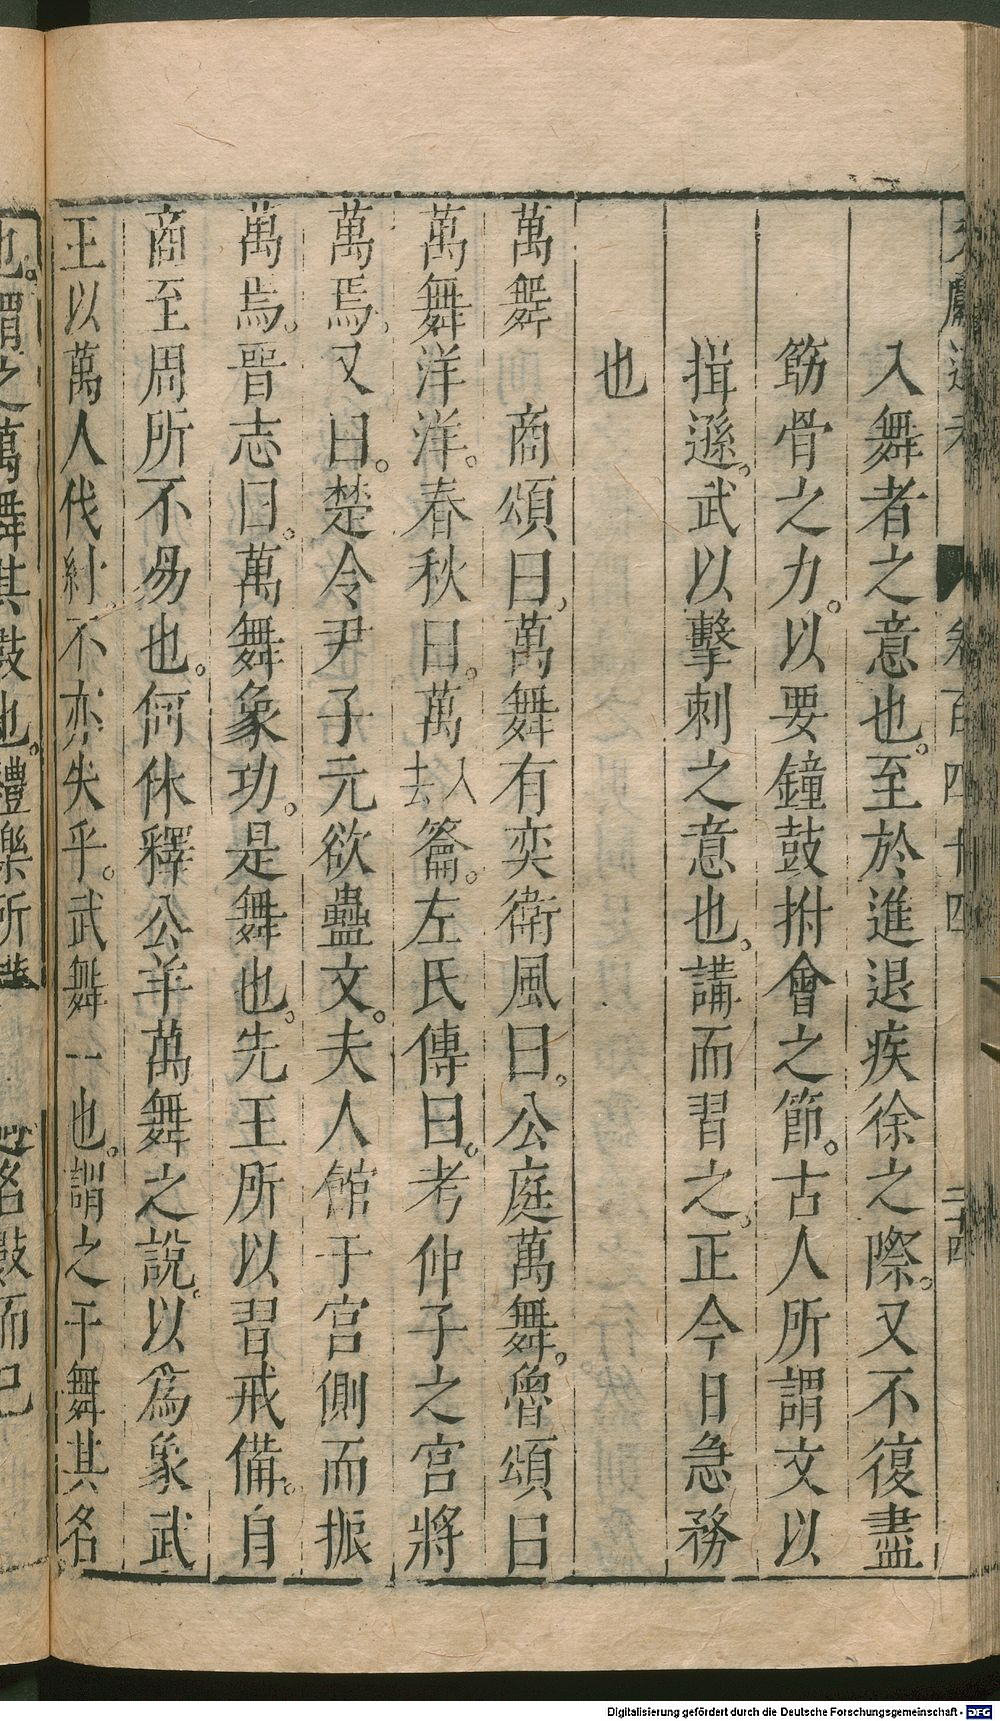 文獻通考 卷百四十四 二十四
入舞者之意也。至於進退疾徐之際。又不復盡
筋骨之力。以要鐘鼓拊會之節。古人所謂文以
揖遜。武以擊刺之意也。講而習之。正今日急務
也
萬舞 商頌曰。萬舞有奕衛風曰。公庭萬舞。魯頌曰
萬舞洋洋。春秋曰。萬入去籥。左氏傳曰。考仲子之宮將
萬焉。又曰。楚令尹子元欲蠱文。夫人館于宮側而振
萬焉。晋志曰。萬舞象功。是舞也。先王所以習戒備。自
商至周所不易也。何休釋公羊萬舞之說。以為象武
王以萬人伐紂。不亦失乎。武舞一也。謂之干舞其名
也。謂之萬舞其鼓也。禮樂所 名鼓而已
Digitalisierung gefördert durch die Deutsche Forschungsgemeinschaft - DFG